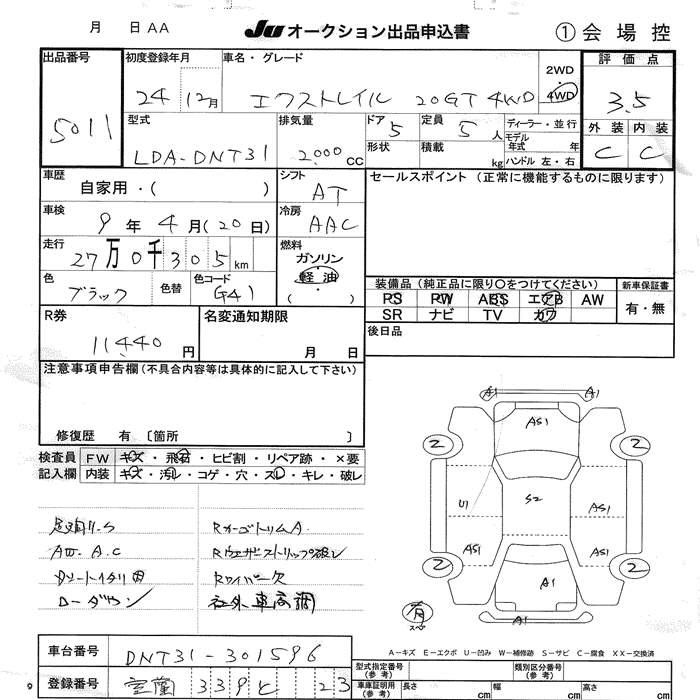 月 日 AA
JU オークション出品申込書
① 会場控
出品番号
5011
初度登録年月
24 12月
車名・グレード
エクストレイル 20GT 4WD
2WD
4WD
評価点
3.5
型式
LDA-DNT31
排気量
2000 CC
ドア 5
形状
定員 5 人
積載 kg
ディーラー・並行
モデル年式 年
ハンドル 左・右
外装 内装
C C
車歴
自家用・( )
シフト
AT
セールスポイント（正常に機能するものに限ります）
車検
9年 4月(20日)
冷房
AAC
走行
27万0千305km
燃料
ガソリン
軽油
( )
色
ブラック
色替
色コード
G41
装備品（純正品に限り○をつけてください）
新車保証書
PS PW ABS エアB AW
SR ナビ TV カワ
有・無
R券
11,440 円
名変通知期限
月 日
後日品
注意事項申告欄(不具合内容等は具体的に記入して下さい)
修復歴 有 〔箇所 〕
検査員
記入欄
FW キズ・飛石・ヒビ割・リペア跡・×要
内装 キズ・汚れ・コゲ・穴・スレ・キレ・破レ
A1 A1
AS1
2 2
U1 S2 AS1
AS1 AS1
2 2
A1
A1
有
スペ
Rカーゴトリム A
Rウェザストリップ破レ
Rワイパー欠
社外車高調
ローダウン
A-キズ E-エクボ U-凹み W-補修跡 S-サビ C-腐食 XX-交換済
車台番号
DNT31-301596
登録番号
室蘭 339 ヒ 23
型式指定番号
(参考)
類別区分番号
(参考)
車庫証明用
(参考)
長さ cm
幅 cm
高さ cm
9